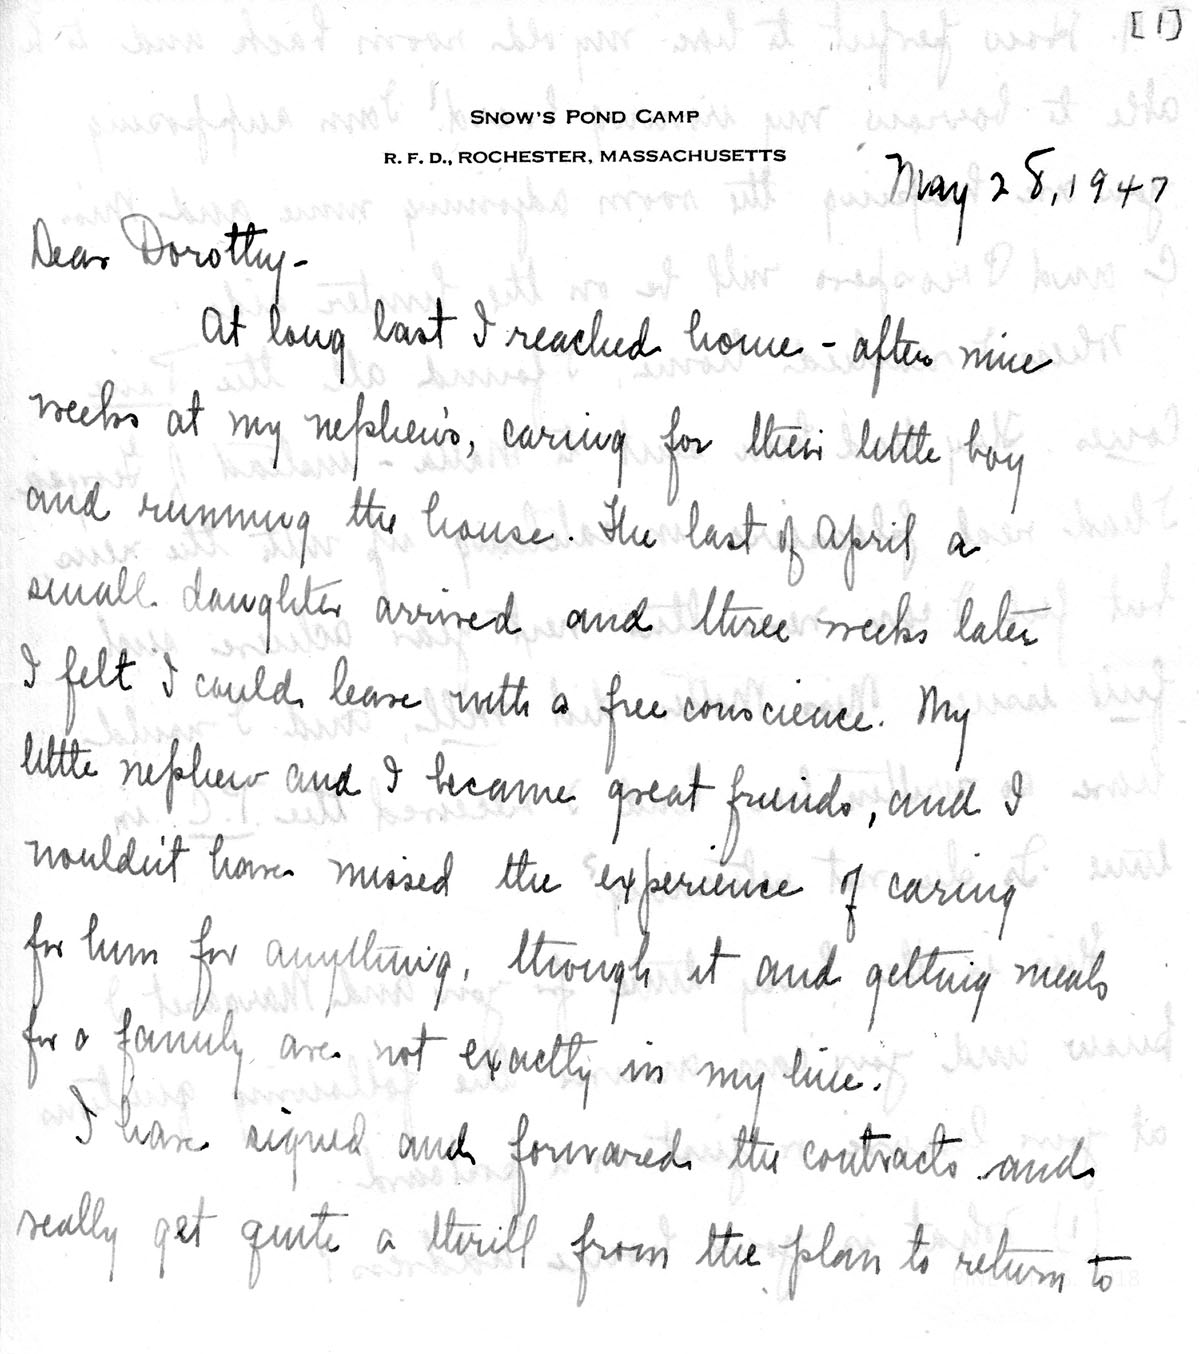 [1]
SNOW'S POND CAMP
R. F. D., ROCHESTER, MASSACHUSETTS
May 28, 1947
Dear Dorothy-
At long last I reached home - after nine
weeks at my nephew's, caring for their little boy
and running the house. The last of April a
small daughter arrived and three weeks later
I felt I could leave with a free conscience. My
little nephew and I became great friends, and I
wouldn't have missed the experience of caring
for him for anything, though it and getting meals
for a family are not exactly in my line.
I have signed and forwarded the contracts and
really get quite a thrill from the plan to return to